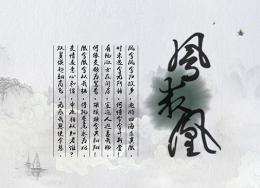 凤求凰
凤兮凤兮归故乡，遨游四海求其凰。
时未遇兮无所将，何悟今兮升斯堂！
有艳淑女在闺房，室迩人遐毒我肠。
何缘交颈为鸳鸯，胡颉颃兮共翱翔！
凰兮凰兮从我栖，得托孳尾永为妃。
交情通意心和谐，中夜相从知者谁？
双翼俱起翻高飞，无感我思使余悲。